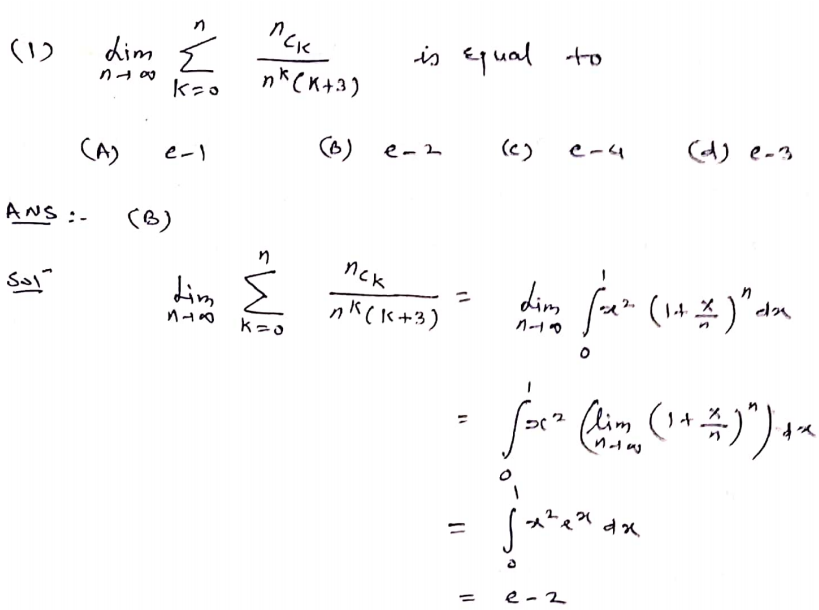 (1) Lim n→∞ n Σ k=0 nCk / n^k (k+3) is equal to
(A) e-1 (B) e-2 (c) e-4 (d) e-3
ANS :- (B)
Sol^n Lim n→∞ n Σ k=0 nCk / n^k (k+3) = Lim n→∞ ∫_0^1 x^2 (1+ x/n)^n dx
= ∫_0^1 x^2 (lim n→∞ (1+ x/n)^n) dx
= ∫_0^1 x^2 e^x dx
= e-2